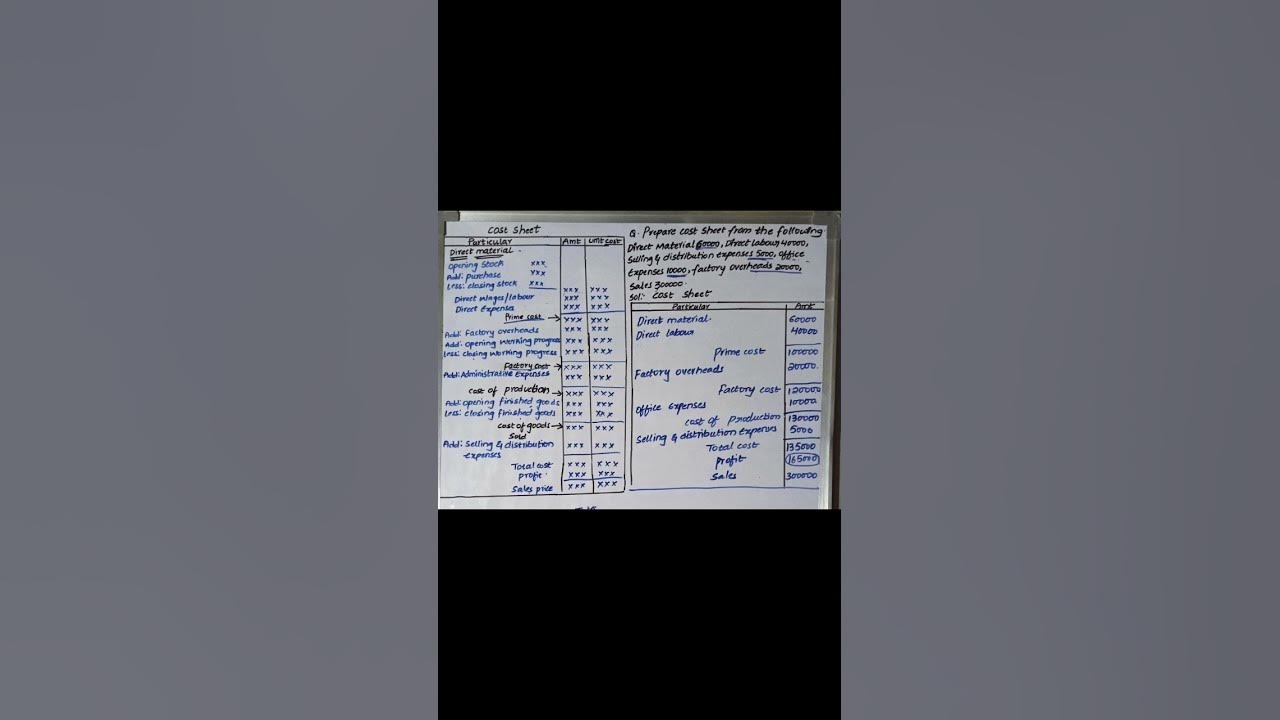 Cost Sheet
Particular Amt Unit cost
Direct material.
opening stock xxx
Add: purchase xxx
Less: closing stock xxx xxx xxx
Direct wages/labour xxx xxx
Direct Expenses xxx xxx
Prime cost → xxx xxx
Add: Factory overheads xxx xxx
Add: opening working progress xxx xxx
Less: closing working progress xxx xxx
Factory cost → xxx xxx
Add: Administrative Expenses xxx xxx
cost of production → xxx xxx
Add: opening finished goods xxx xxx
Less: closing finished goods xxx xxx
Cost of goods → xxx xxx
Sold
Add: Selling & distribution xxx xxx
expenses
Total cost xxx xxx
profit xxx xxx
Sales price xxx xxx
Q. Prepare cost sheet from the following
Direct Material 60000, Direct labour 40000,
Selling & distribution expenses 5000, office
Expenses 10000, factory overheads 20000,
Sales 300000.
Sol: Cost Sheet
Particular Amt
Direct material. 60000
Direct labour 40000
Prime cost 100000
Factory overheads 20000.
Factory cost 120000
Office expenses 10000
cost of production 130000
Selling & distribution expenses 5000
Total cost 135000
profit 165000
Sales 300000